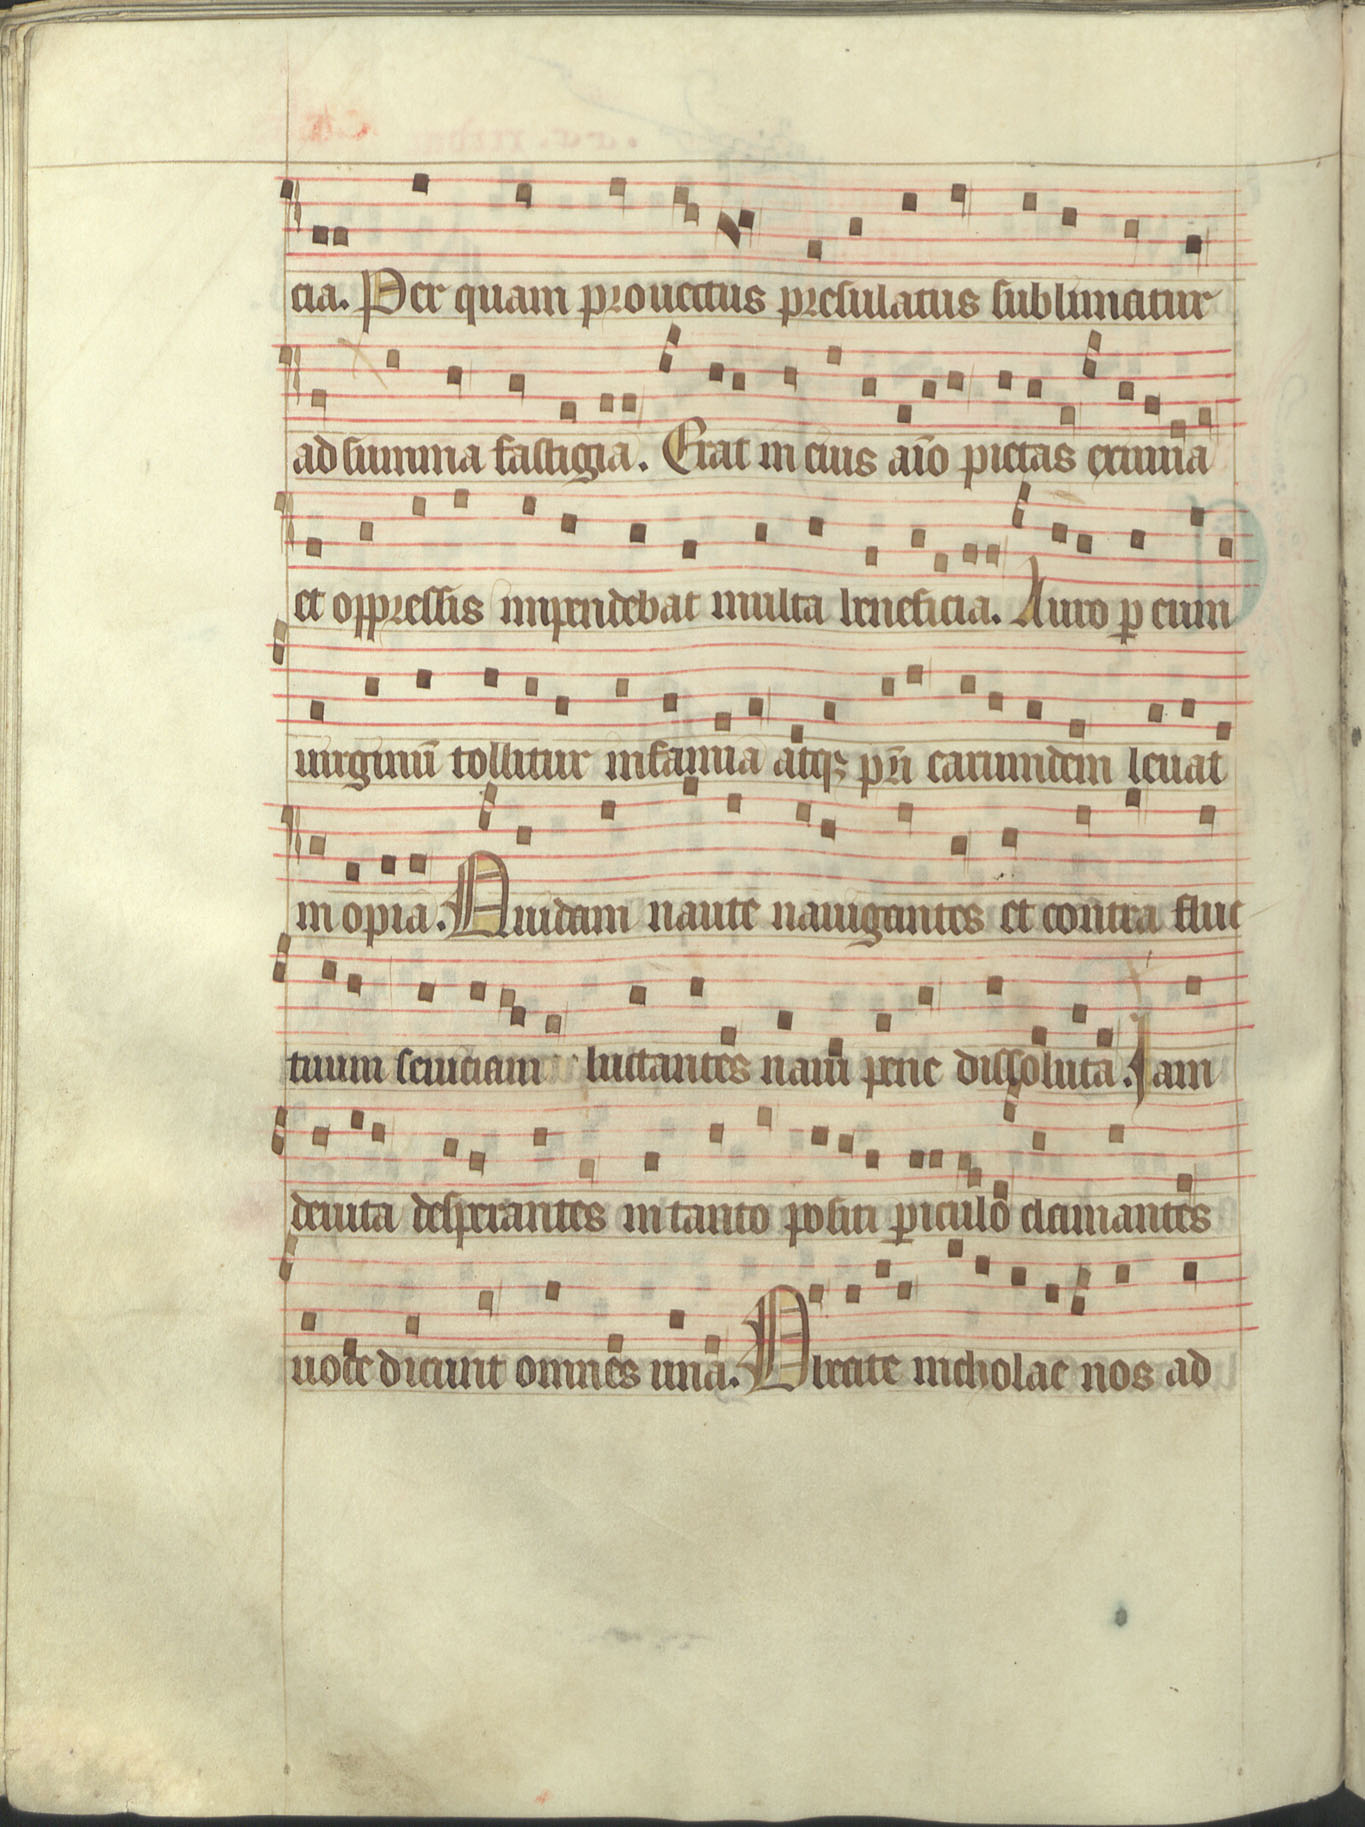 cia. Per quam prouectus presulatus sublimatur
ad summa fastigia. Erat in eius aīo pietas eximia
et oppressis inpendebat multa beneficia. Auro p eum
uirginū tollitur infamia atqꝫ pr̄i earumdem leuat
inopia. Quidam naute nauigantes et contra fluc
tuum seuiciam luctantes naui pene dissoluta. Iam
deuita desperantes in tanto positi piculo clamantes
uoce dicunt omnes una. O beate nicholae nos ad